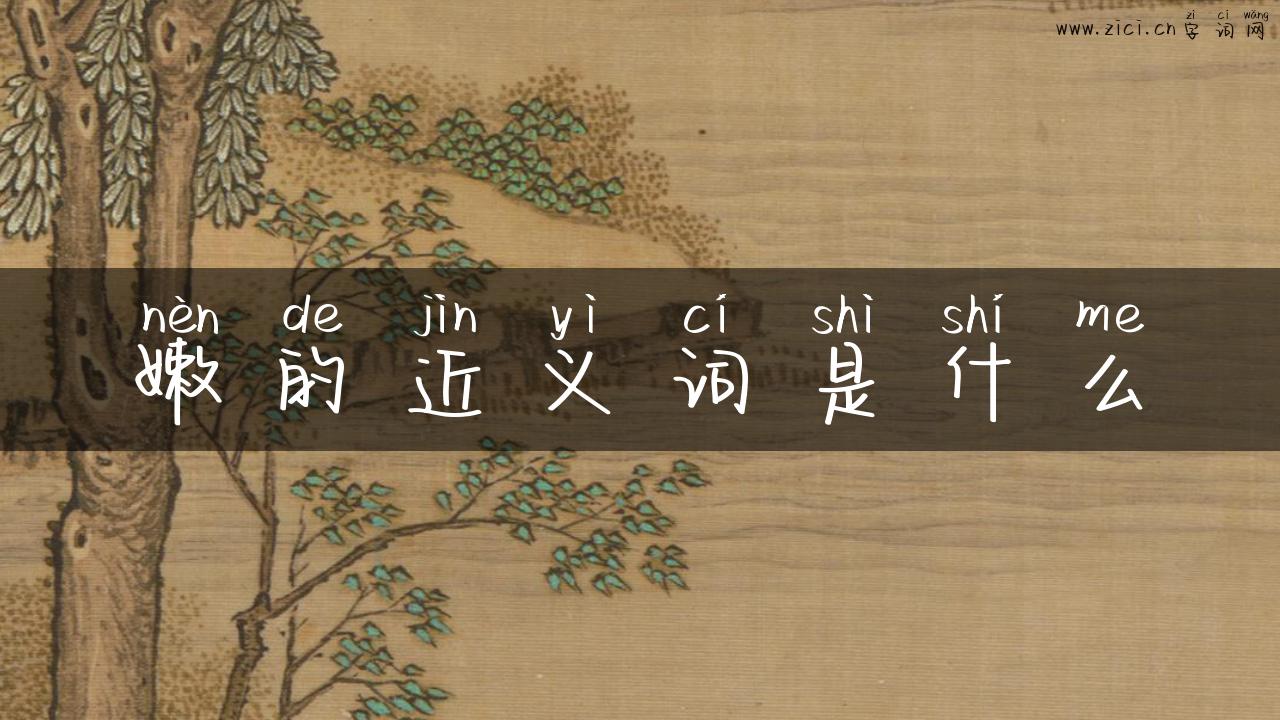 zì cí wǎng
www.zici.cn字词网
nèn de jìn yì cí shì shí me
嫩的近义词是什么